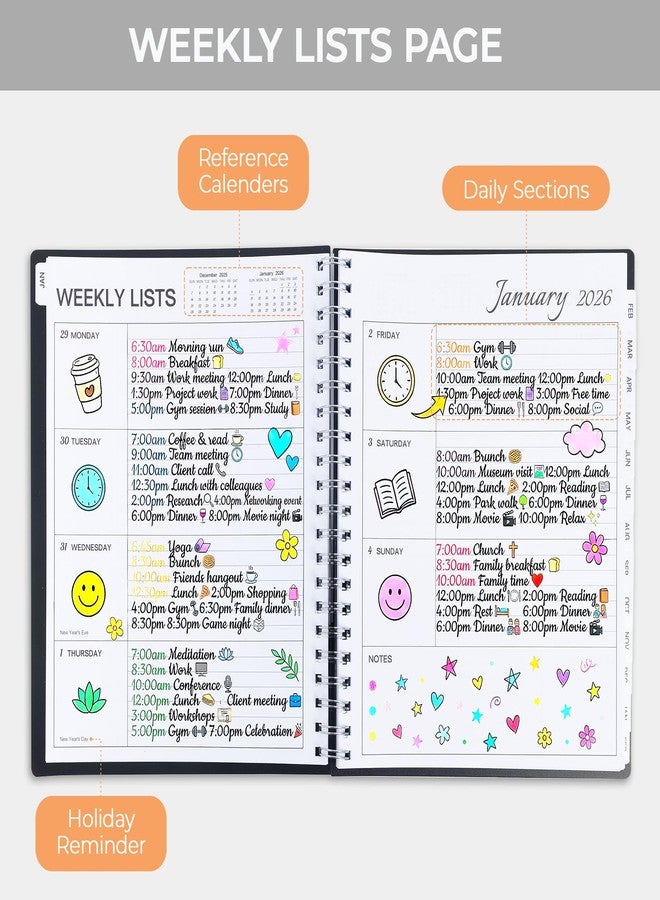 WEEKLY LISTS PAGE
Reference
Calenders
Daily Sections
JAN
WEEKLY LISTS
December 2025
January 2026
January 2026
29 MONDAY
6:30am Morning run
8:00am Breakfast
9:30am Work meeting 12:00pm Lunch
1:30pm Project work 7:00pm Dinner
5:00pm Gym session 8:30pm Study
30 TUESDAY
7:00am Coffee & read
9:00am Team meeting
11:00am Client call
12:30pm Lunch with colleagues
2:00pm Research 4:00pm Networking event
6:00pm Dinner 8:00pm Movie night
31 WEDNESDAY
6:45am Yoga
8:30am Brunch
10:00am Friends hangout
12:30pm Lunch 2:00pm Shopping
4:00pm Gym 6:30pm Family dinner
8:30pm 8:30pm Game night
New Year's Eve
1 THURSDAY
7:00am Meditation
8:30am Work
10:00am Conference
12:00pm Lunch Client meeting
3:00pm Workshops
5:00pm Gym 7:00pm Celebration
New Year's Day
2 FRIDAY
6:30am Gym
8:00am Work
10:00am Team meeting 12:00pm Lunch
1:30pm Project work 3:00pm Free time
6:00pm Dinner 8:00pm Social
3 SATURDAY
8:00am Brunch
10:00am Museum visit 12:00pm Lunch
12:00pm Lunch 2:00pm Reading
4:00pm Park walk 6:00pm Dinner
8:00pm Movie 10:00pm Relax
4 SUNDAY
7:00am Church
8:30am Family breakfast
10:00am Family time
12:00pm Lunch 2:00pm Reading
4:00pm Rest 6:00pm Dinner
6:00pm Dinner 8:00pm Movie
NOTES
FEB
MAR
APR
MAY
JUN
JUL
AUG
SEP
OCT
NOV
Holiday
Reminder